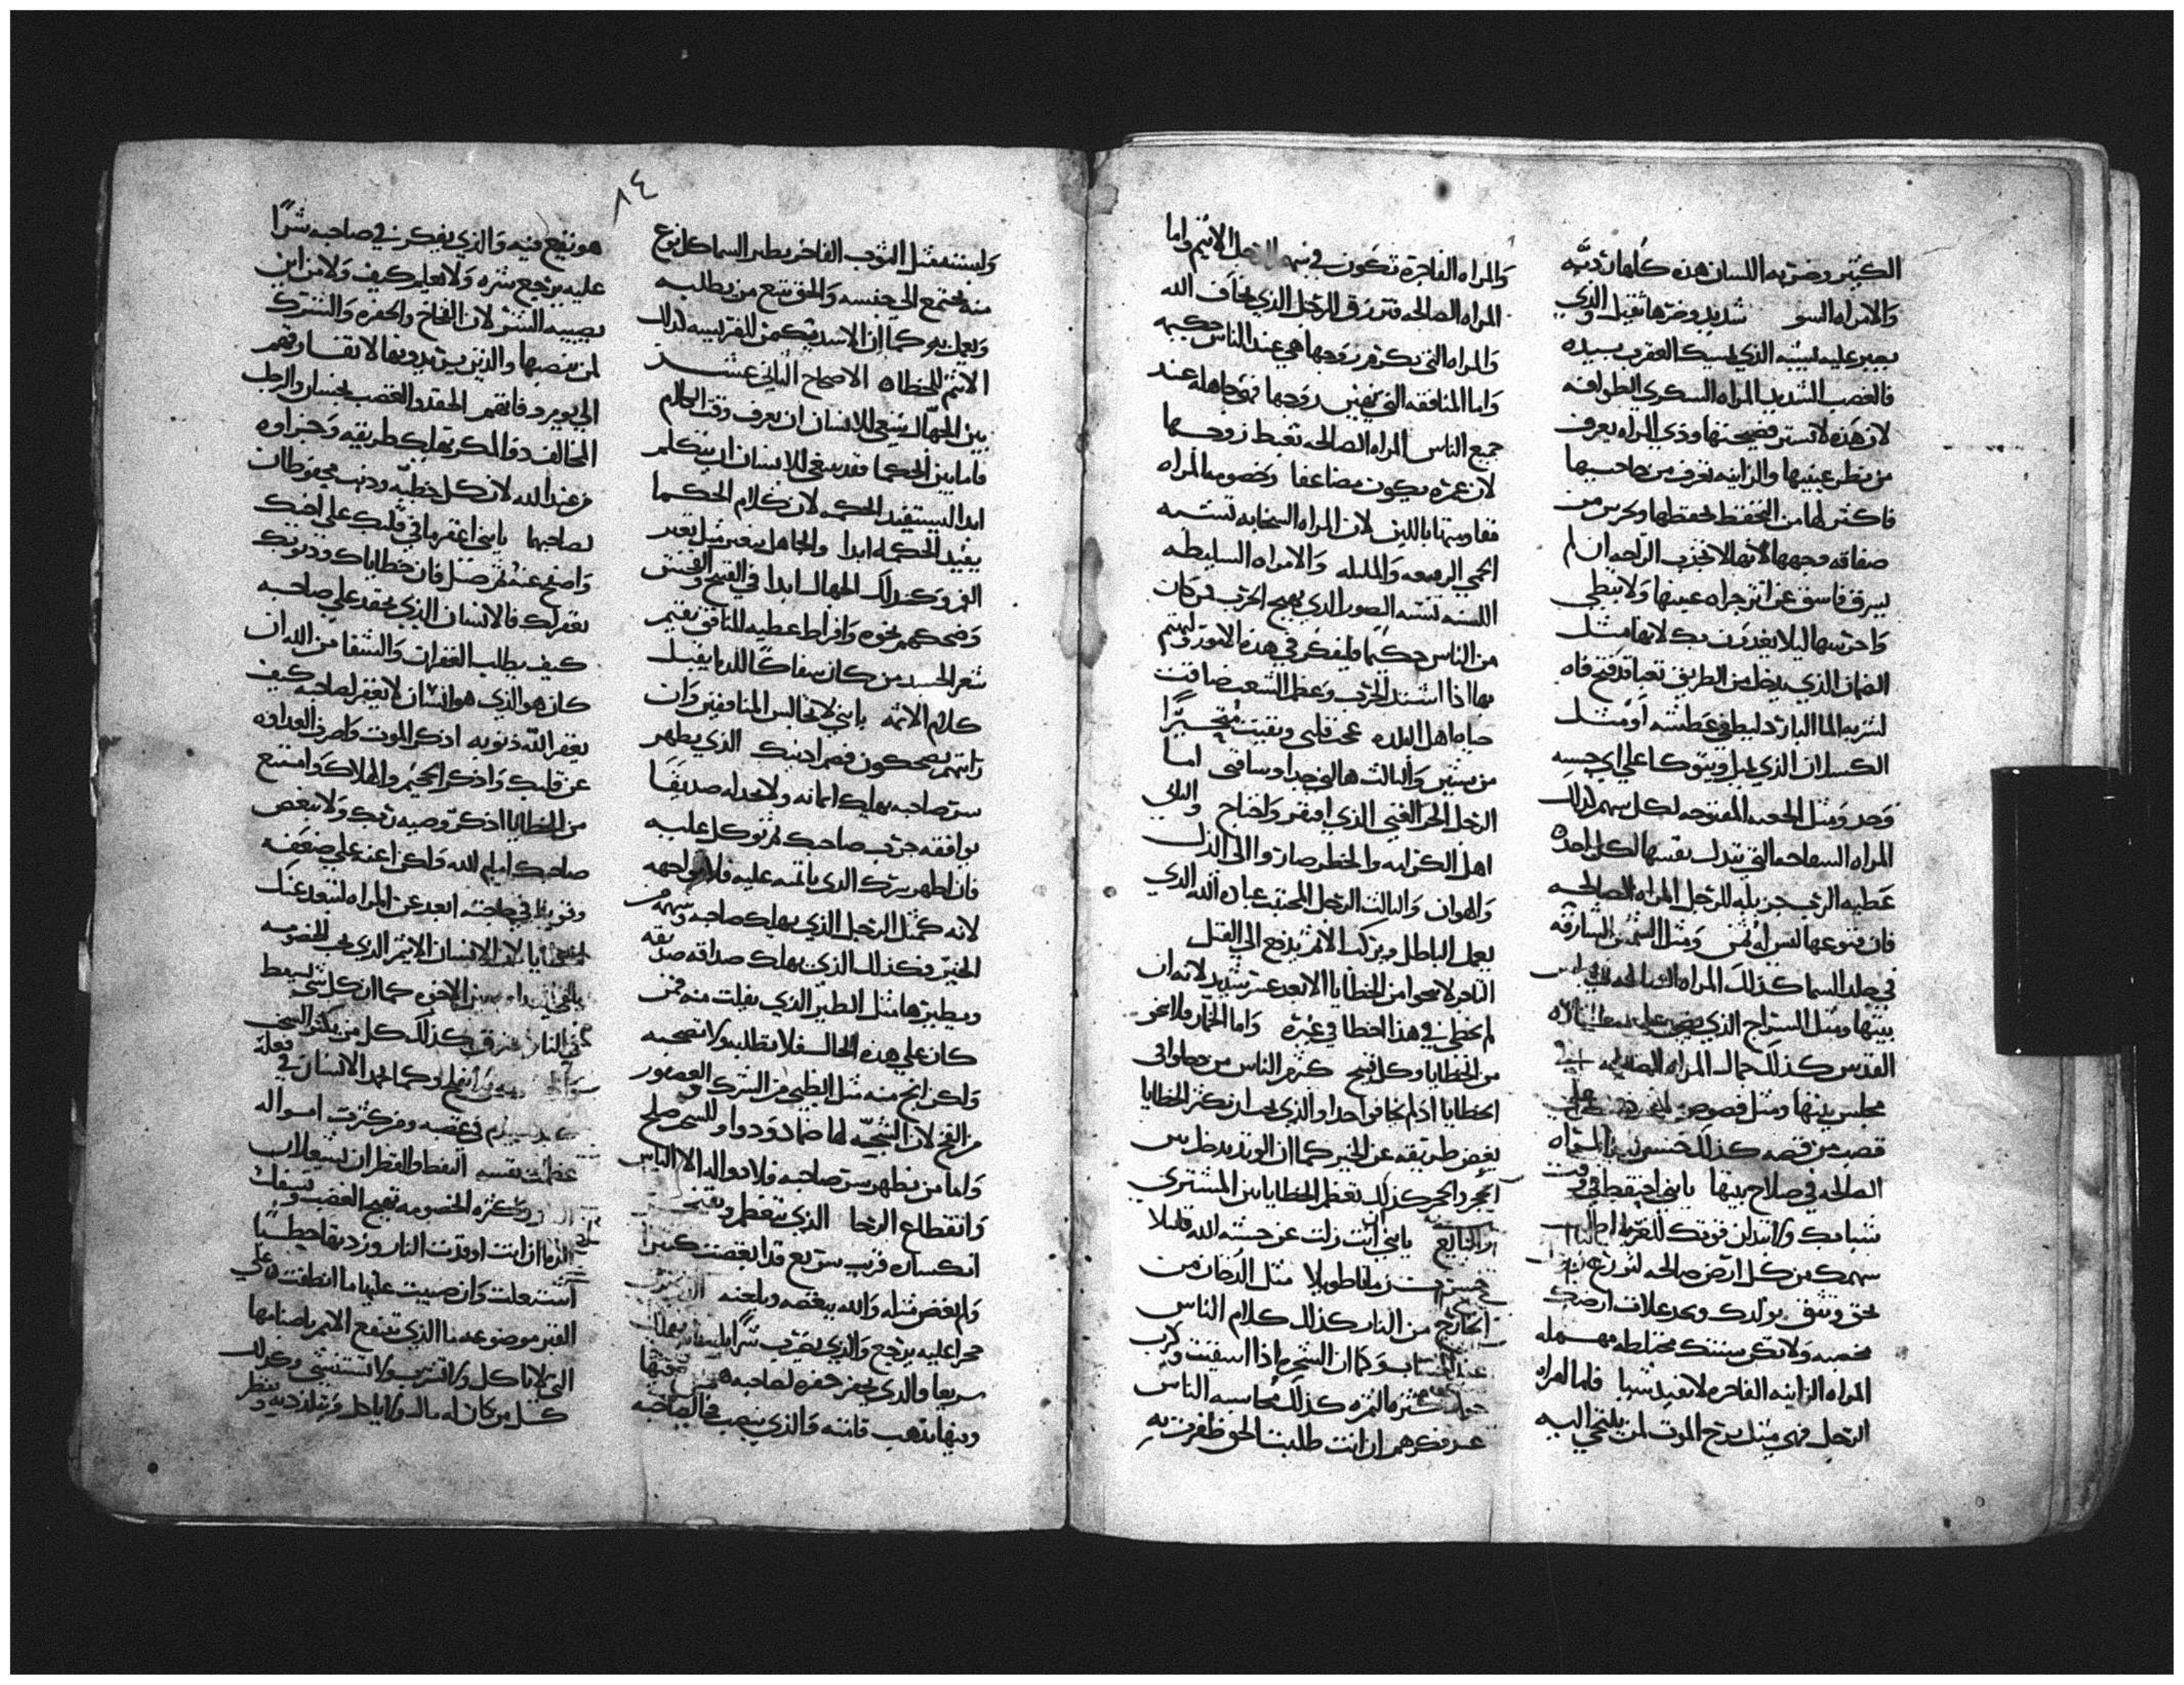 الكتير وضربه اللسان هذه كلها رديه
والامراه السو شديد وضرها ثقيل والذي
يصبر عليه يشبه الذي يمسك العقرب بيده
فالغضب الشديد المراه السكري الطوافه
لان هذه لا تستر فضيحتها وزني المراه يعرف
من نظر عينيها والزانيه تعرف من حاجبيها
فاكثر لها من التحفظ تحفظها وتحرس من
صفاقه وجهها لانها لا تجد الراحه ان لم
تسرق فاسق عن اثر جراه عينها ولا تبطي
واحرسها ليلا يغدرن بك لانها مثل
الضمان الذي يدخل من الطريق تعبا قد فتح فاه
لشربه الما البارد ليطفي عطشه او مثل
الكسلان الذي يميل ويتوكا علي اي خشبه
وجد ومثل الجعبه المفتوحه لكل سهم كذلك
المراه السفاحه التي تبدل نفسها لكل احد
عطيه الرب جزيله للرجل المراه الصالحه
فان قنوعها ليس له ثمن ومثل الشمس الشارقه
في جلد السما كذلك المراه الصالحه في
بيتها ومثل السراج الذي يضي علي مناره
القدس كذلك جمال المراه الصالحه في
مجلس بيتها ومثل فصوص
قصب من فضه كذلك حسن المراه
الصالحه في صلاح بيتها يابني احتفظ في وقت
شبابك ولا تبدل قوتك للغربا
سهمك من كل ارض صالحه لتزرع
لحق وتثق بولدك وبحد غلات ارضك
مخصبه ولا تكن بيتك مختلطه مهمله
المراه الزانيه الفاجره لا تفيد شيا فاما امراه
الرجل فهي مثل برج الموت لمن يلتجي اليه
والمراه الفاجره تكون في سهم الرجل الاثيم واما
المراه الصالحه فترزق الرجل الذي يخاف الله
والمراه التي تكرم زوجها هي عند الناس حكيمه
واما المنافقه التي تهين زوجها فهي جاهله عند
جميع الناس المراه الصالحه تغبط زوجها
لان عمره يكون مضاعفا وخصومه المراه
فقاومتها باللين لان المراه السخابه تشبه
الحمي الربيعه والمليله والامراه السليطه
اللسنه تشبه الصور الذي يهيج الحرب فمن كان
من الناس حكيما فليفكر في هذه الامور وليهتم
بها اذا اشتد الحرب وعظم الشعب ضاقت
حياه اهل البلده عجب قلبي وبقيت متحيرا
من شيين والثالث هالني جدا وساقني اما
الرجل الحر الغني الذي افتقر واحتاج والثاني
اهل الكرامه والخطر صاروا الي الذل
والهوان والثالث الرجل المجتنب عباده الله الذي
يعمل الباطل ويترك الاثم يدفع الي القتل
التاجر لا ينجوا من الخطايا الا بعد عسر شديد لانه ان
لم يخطي في هذا اخطا في غيره واما الخمار فلا يبرر
من الخطايا وكل قبيح كثير من الناس من خطوا في
الخطايا اذ لم يخافوا احدا والذي يحب ان تكثر الخطايا
يغض طريقه عن الخير كما ان الوتد يدخل بين
الحجر والحجر كذلك تعظم الخطايا بين المشتري
والبايع يابني ان انت زلت عن خشيه الله قليلا
خسرت زمانا طويلا مثل الدخان من
الخارج من النار كذلك كلام الناس
عند الحساب وكما ان الشجره اذا اسقيت وكرب
كثير ما تثمره كذلك محاسبه الناس
عند فكرهم ان انت طلبت الحق ظفرت به
٨٤
ولبسته مثل الثوب الفاخر يطير السما كل نوع
منه يجتمع الي جنسه والحق يتبع من يطلبه
ويعمل به كما ان الاسد يكمن للفريسه كذلك
الاثم للخطاه الاصحاح الثاني عشر
بين الجهال ينبغي للانسان ان يعرف وقت الكلام
فاما بين الحكما فقد ينبغي للانسان ان يتكلم
ابدا ليستفيد الحكمه لان كلام الحكما
يفيد الحكمه ابدا والجاهل يتغير مثل تغير
القمر وكذلك الجهال ابدا في القبيح والفحش
وضحكهم بخوه وافراط عطيه للنافق تقيم
شعر الجسد من كان سفاكا للدما يقبل
كلام الاثمه يابني لا تجالس المنافقين وان
رايتهم يضحكون فصم ادنيك الذي يظهر
سر صاحبه يهلك امانه ولا يجد له صديقا
يوافقه جرب صاحبك ثم توكل عليه
فان اظهر سرك الذي ياتمنه عليه فلا تواجهه
لانه كمثل الرجل الذي يهلك صاحبه وسهمه من
الخير فكذلك الذي يهلك صداقه صديقه
ويطيرها مثل الطير الذي يفلت منه فمن
كان علي هذه الحال فلا تطلبه ولا تصحبه
ولكن انج منه مثل الظبي من الشرك والعصفور
من الفخ لان الشجه لها ضماد ودوا وللشر صلح
واما من يظهر سر صاحبه فلا دوا له الا الياس
وانقطاع الرجا الذي يتعظم ويفتخر
انكساره قريب سريع قد ابغضت كثيرا
ولم ابغض مثله والله يبغضه ويلعنه
حجرا عليه يرجع والذي يضرب شرا
سريعا والذي يحفر حفره لصاحبه
وفيها يذهب قامته والذي ينصب فخا لصاحبه
هو يقع فيه والذي يفكر في صاحبه شرا
عليه يرجع شره ولا يعلم كيف ولا من اين
يصيبه الشر لان الفخاخ والحفره والشرك
لمن ينصبها والذين يريدونها لا تفارقهم
الي يوم وفاتهم الحقد والغضب نجسان والرجل
المخالف ذو المكر تهلك طريقه وجزاوه
من عند الله لان كل خطيه وذنب محفوظان
لصاحبها يابني اغفر ما في قلبك علي اخيك
واصفح عنه ثم صل فان خطاياك وذنوبك
تغفر لك فالانسان الذي يحقد علي صاحبه
كيف يطلب الغفران والشفا من الله ان
كان هو الذي هو انسان لا يغفر لصاحبه كيف
يغفر الله ذنوبه اذكر الموت واصرف العداوه
عن قلبك واذكر الجحيم والهلاك وامتنع
من الخطايا اذكر وصيه ربك ولا تبغض
صاحبك امام الله ولكن اعنه علي ضعفه
وقوته في حاجته ابعد عن المراه لتبعد عنك
الخطايا لان الانسان الاثيم الذي يحب الخصومه
يلقي العداوه بين الاخوه كما ان كل شي يسقط
في النار يحترق كذلك كل من يكثر السخب
وكما جهد الانسان في فعله
في غضبه ومن كثرت امواله
عظمت نفسه النفط والقطران يشعلان
النار وكثره الخصومه تهيج الغضب وتسفك
الدما ان انت اوقدت النار وزدتها حطبا
اشتعلت وان صببت عليها ما انطفت علي
القبر موضوعه ما الذي تنفع الامم باصنامها
التي لا تاكل ولا تشرب ولا تستنشي وكذلك
كل من كان له مال ولا ياكل فهو يلذ به وينظر